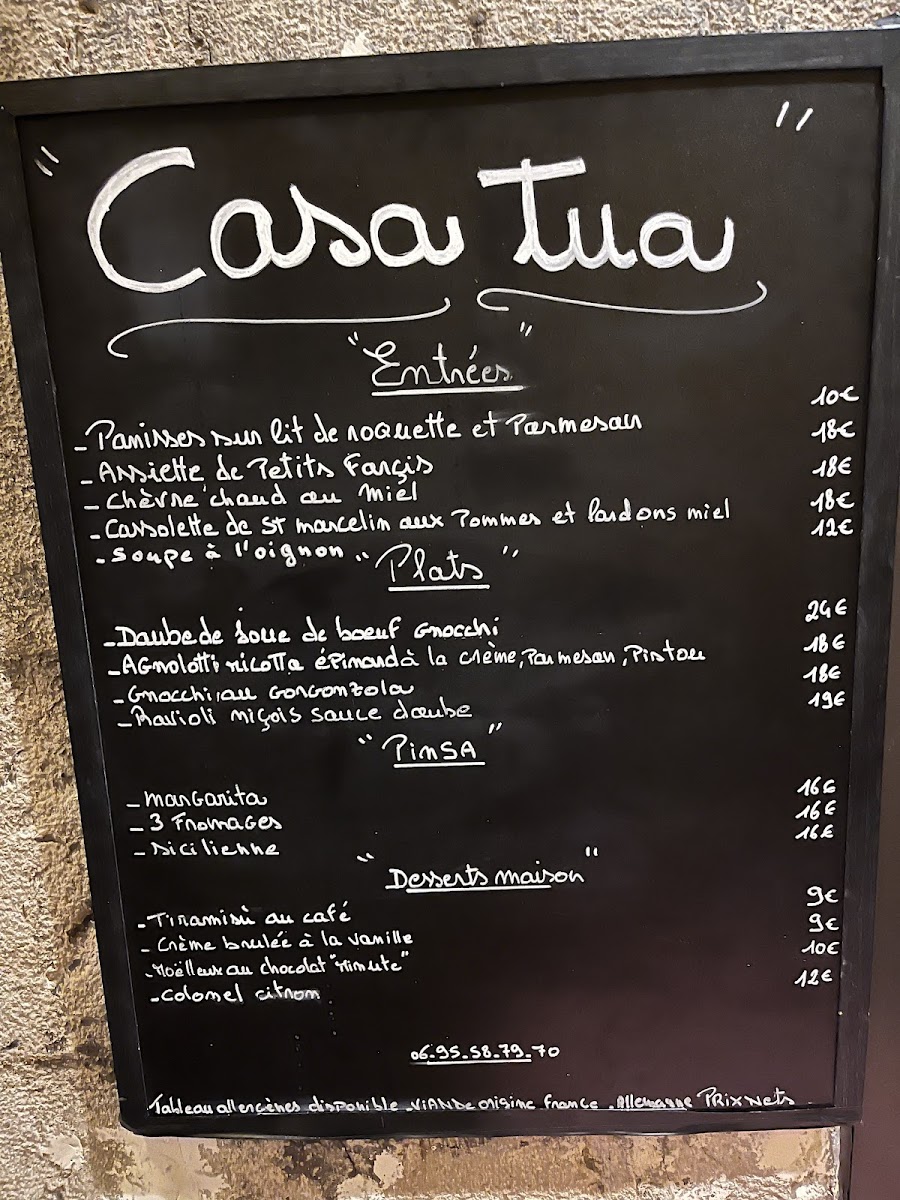 " Casa Tua "
"Entrées"
- Panisses sur lit de roquette et Parmesan 10€
- Assiette de Petits Farçis 18€
- chèvre chaud au miel 18€
- Cassolette de St marcelin aux Pommes et lardons miel 18€
- Soupe à l'oignon 12€
"Plats"
- Daube de Joue de boeuf Gnocchi 24€
- AGnolotti ricotta épinard à la crème, Parmesan, Pistou 18€
- Gnocchi au GorGonzola 18€
- Ravioli niçois sauce daube 19€
"PinSA"
- marGarita 16€
- 3 FromaGes 16€
- sicilienne 16€
"Desserts maison"
- Tiramisù au café 9€
- Crème brulée à la vanille 9€
- Moëlleux au chocolat "minute" 10€
- Colonel citron 12€
06.95.58.79.70
Tableau allergènes disponible . VIANDe origine france . Allemagne PRix Nets .